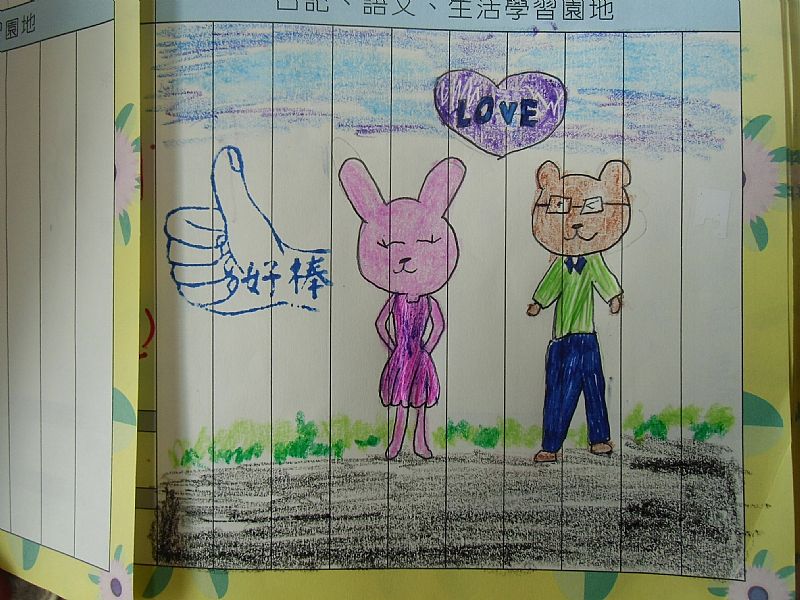 日記、語文、生活學習園地
園地
LOVE
好棒